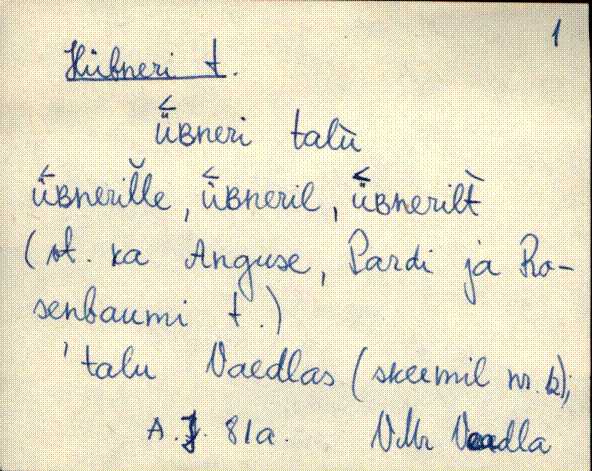 1
Hübneri t.
ÜBneri talù
ÜBnerille, ÜBneril, ÜBnerilt
(vt. ka Anguse, Pardi ja Ro-
senbaumi t.)
'talu Vaedlas (skeemil nr. 12);
A. J. 81a. V.Mr Veadla